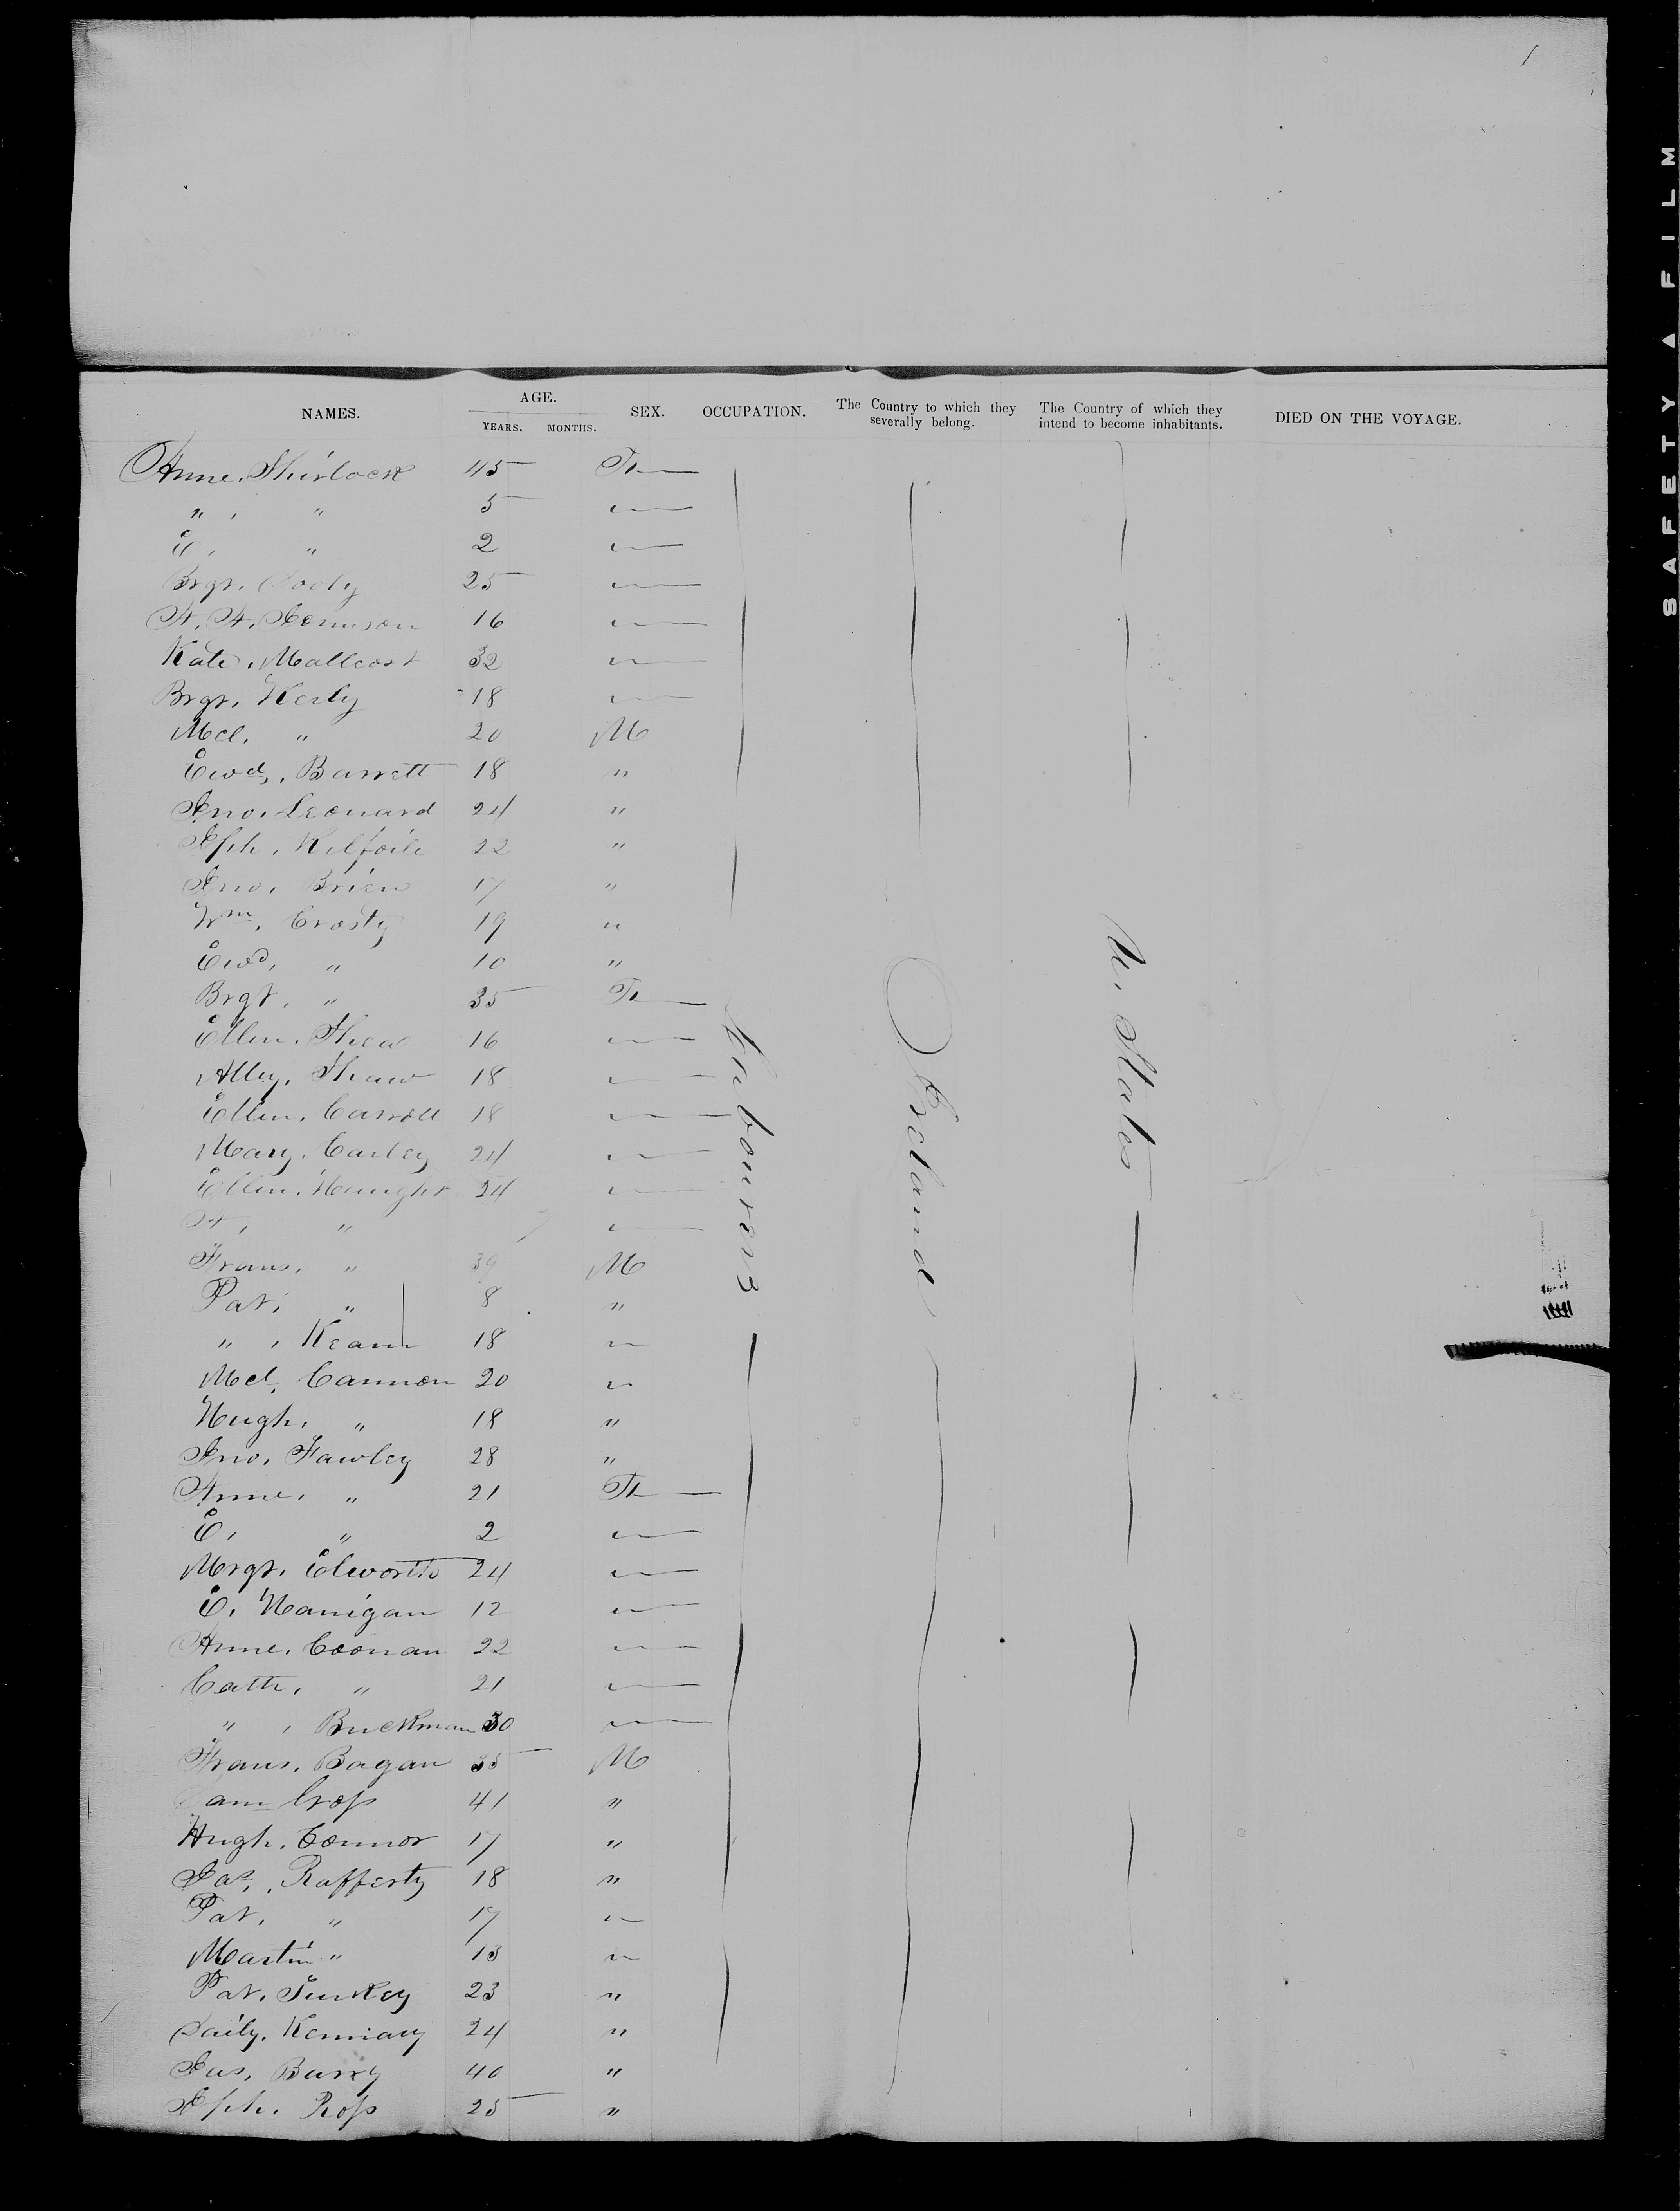 1
NAMES. AGE. SEX. OCCUPATION. The Country to which they severally belong. The Country of which they intend to become inhabitants. DIED ON THE VOYAGE.
YEARS. MONTHS.
Anne, Shirlock 45 F
" , " 5 "
E, " 2 "
Brgt, 25 "
16 "
Kate, 32 "
Brgt, Kerly 18 "
Mcl, " 20 M
Ewd, Barrett 18 "
Jno, Leonard 24 "
Jsph, Kilfoile 22 "
Jno, Brien 17 "
Wm, Crosty 19 "
Ewd, " 10 "
Brgt, " 35 F
Ellen, Shea 16 "
Alley, Shaw 18 "
Ellen, Carroll 18 "
Mary, Carley 24 "
Ellen, Haught 24 "
" "
Frans, " 39 M
Pat, " 8 "
" , Keann 18 "
Mcl, Cannon 20 "
Hugh, " 18 "
Jno, Fawley 28 "
Anne, " 21 F
E, " 2 "
Mrgt, Elworth 24 "
E, Hanigan 12 "
Anne, Coonan 22 "
Cath, " 21 "
" , Buckman 30 "
Frans, Bagan 35 M
Sam Cross 41 "
Hugh, Connor 17 "
Jas, Rafferty 18 "
Pat, " 17 "
Martin " 13 "
Pat, 23 "
24 "
Jas, Barry 40 "
Jsph, Ross 25 "
Labourers
Ireland
U. States
SAFETY A FILM